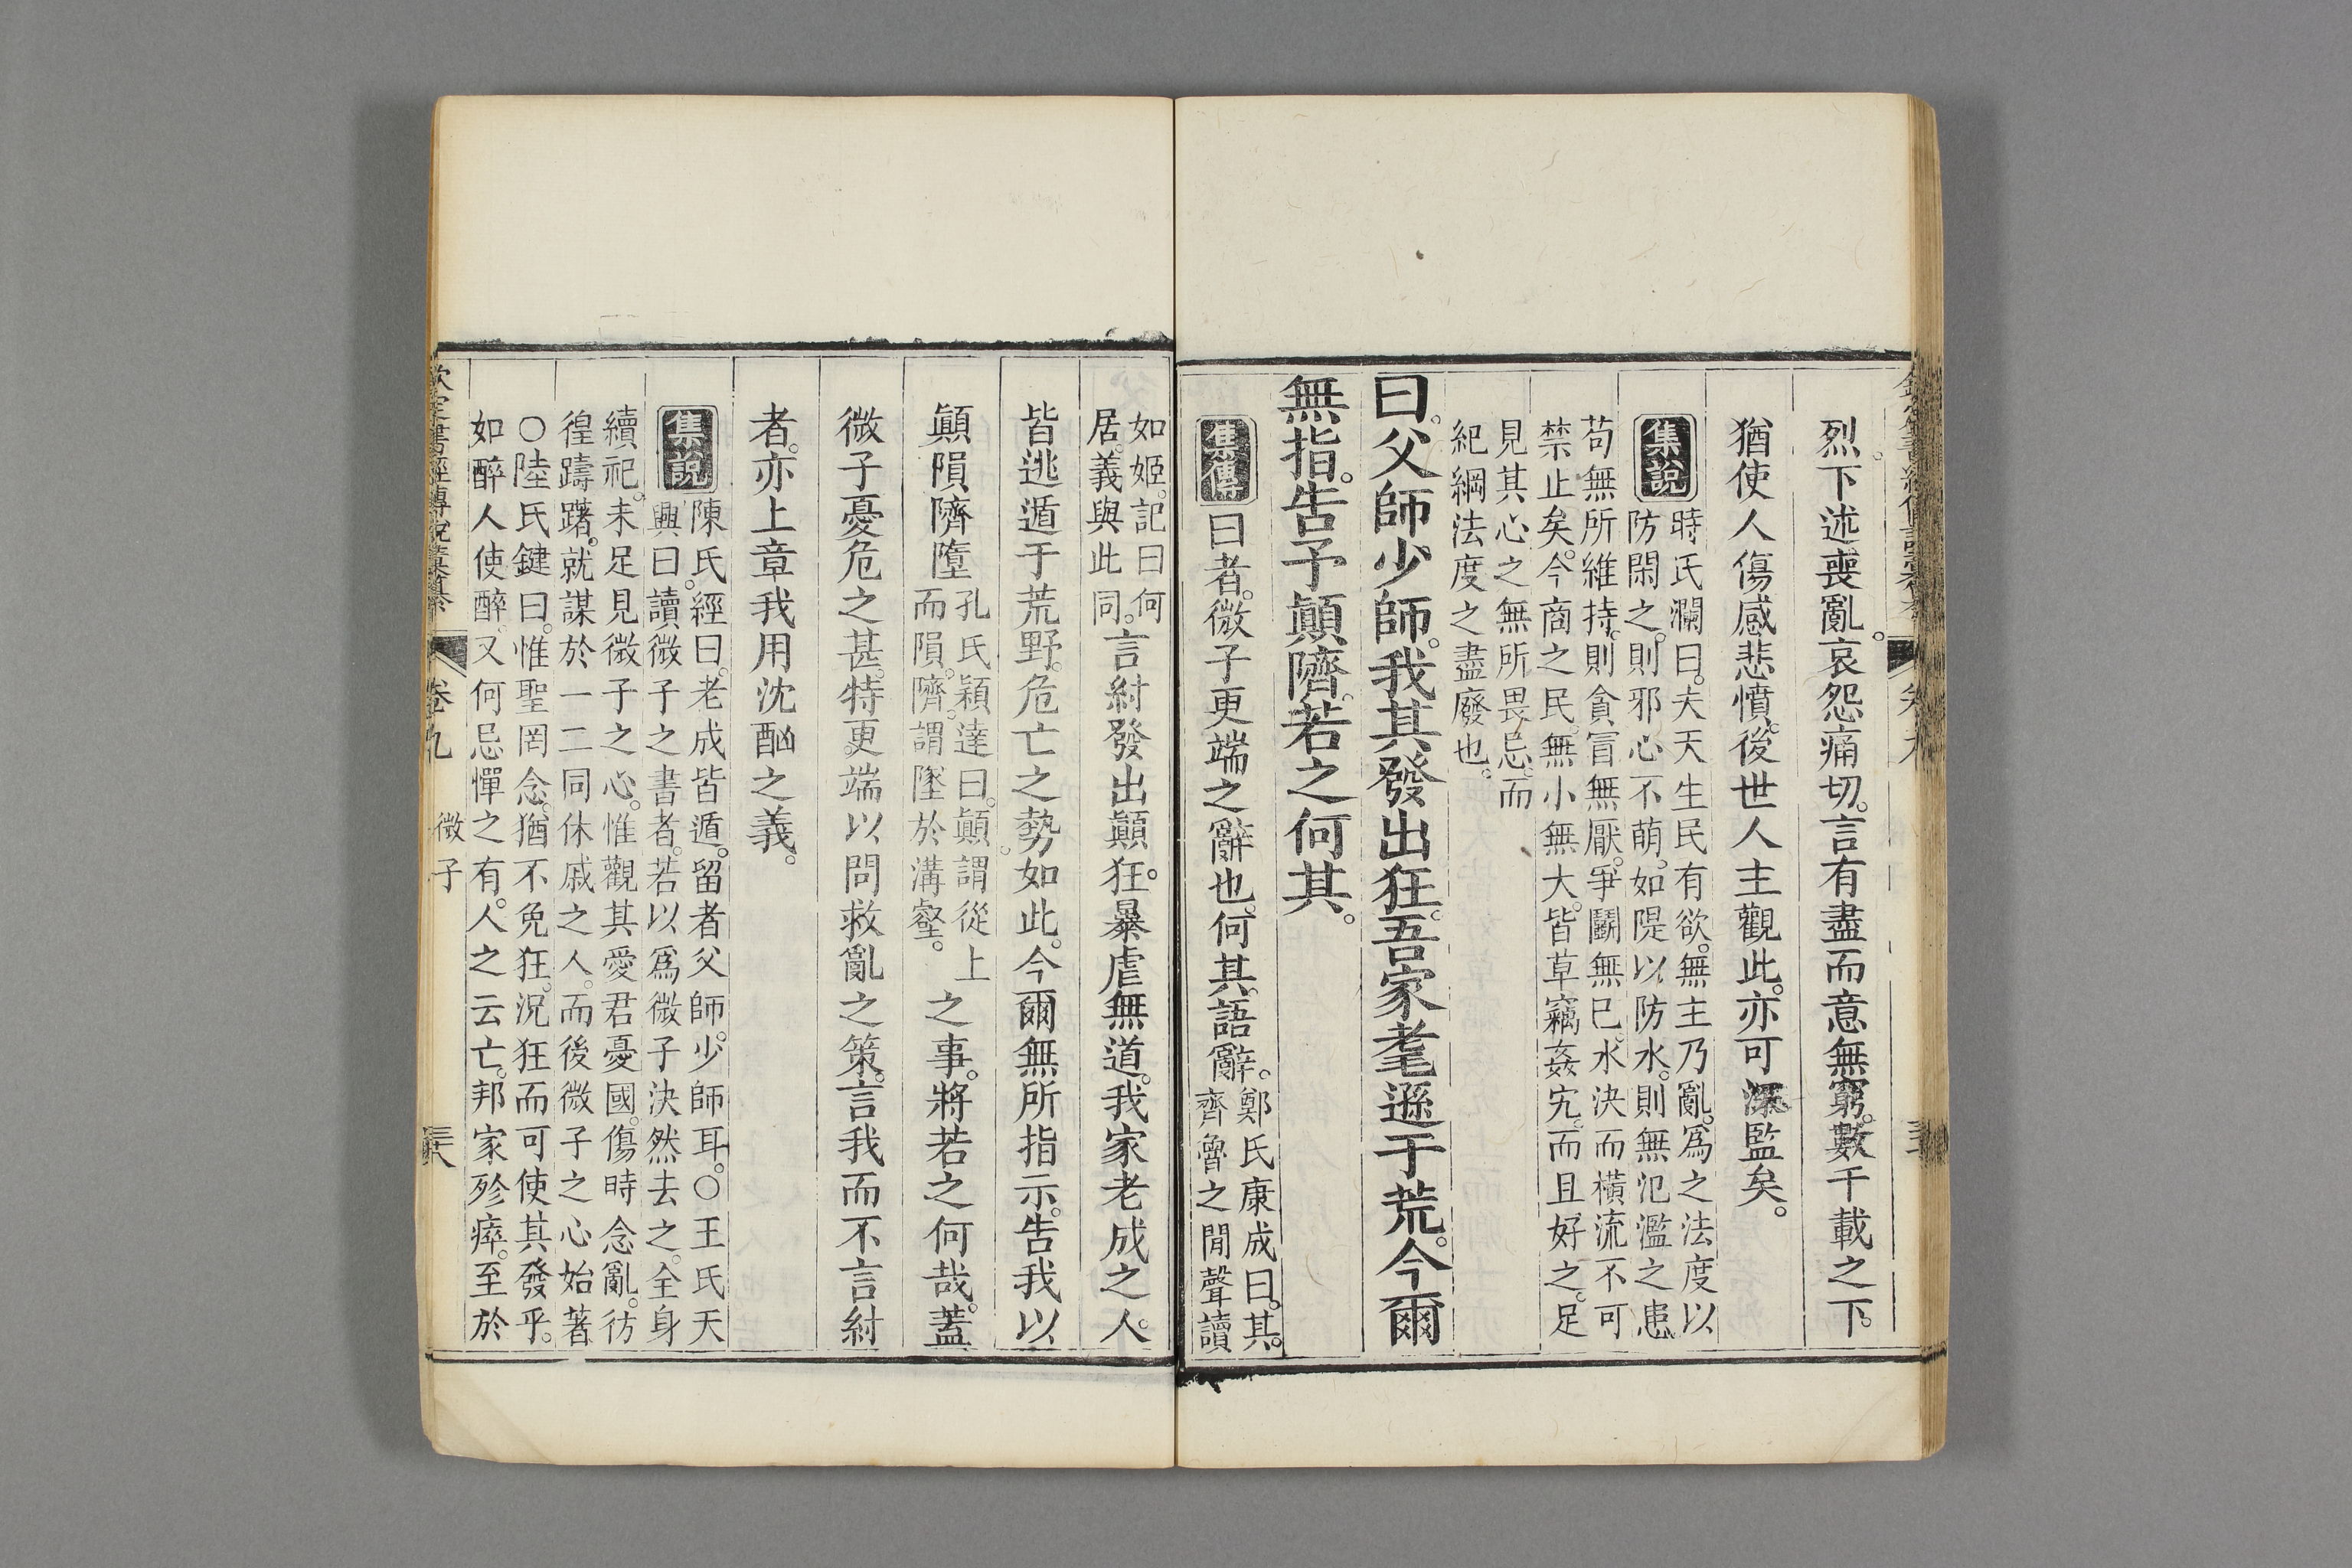 烈。下述喪亂。哀怨痛切。言有盡而意無窮。數千載之下。
猶使人傷感悲憤。後世人主觀此。亦可深監矣。
集說
時氏瀾曰。夫天生民有欲。無主乃亂。爲之法度以
防閑之。則邪心不萌。如隄以防水。則無氾濫之患。
苟無所維持。則貪冒無厭。爭鬭無已。水決而橫流不可
禁止矣。今商之民。無小無大。皆草竊姦宄。而且好之。足
見其心之無所畏忌。而
紀綱法度之盡廢也。
曰。父師少師。我其發出狂。吾家耄遜于荒。今爾
無指。告予顛隮。若之何其。
集傳
曰者。微子更端之辭也。何其。語辭。
鄭氏康成曰。其。
齊魯之閒聲讀
如姬。記曰何
居。義與此同。
言紂發出顛狂。暴虐無道。我家老成之人。
皆逃遁于荒野。危亡之勢如此。今爾無所指示。告我以
顛隕隮墮
孔氏穎達曰。顛謂從上
而隕。隮。謂墜於溝壑。
之事。將若之何哉。蓋
微子憂危之甚。特更端以問救亂之策。言我而不言紂
者。亦上章我用沈酗之義。
集說
陳氏經曰。老成皆遁。留者父師。少師耳。〇王氏天
興曰。讀微子之書者。若以爲微子決然去之。全身
續祀。未足見微子之心。惟觀其愛君憂國。傷時念亂。彷
徨躊躇。就謀於一二同休戚之人。而後微子之心始著。
〇陸氏鍵曰。惟聖罔念。猶不免狂。況狂而可使其發乎。
如醉人使醉。又何忌憚之有。人之云亡。邦家殄瘁。至於
欽定書經傳說彙纂
卷九
微子